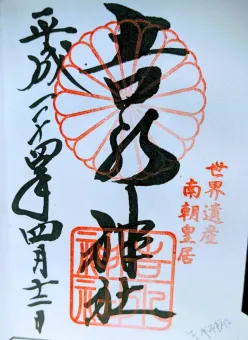 世界遺産
南朝皇居
吉水神社
平成二十四年四月十二日
吉水
神社